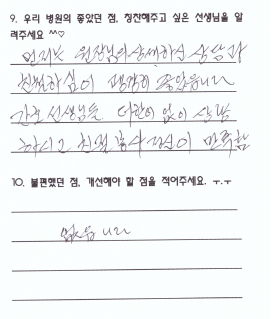 9. 우리 병원의 좋았던 점, 칭찬해주고 싶은 선생님을 알
려주세요 ^^♡
원장님의 상세하신 상담과
친절하심이 굉장히 좋았읍니다
간호 선생님들 더할이 없이 상담
하시고 친절 봉사 정신이 만족함
10. 불편했던 점, 개선해야 할 점을 적어주세요. ㅜ.ㅜ
없읍니다